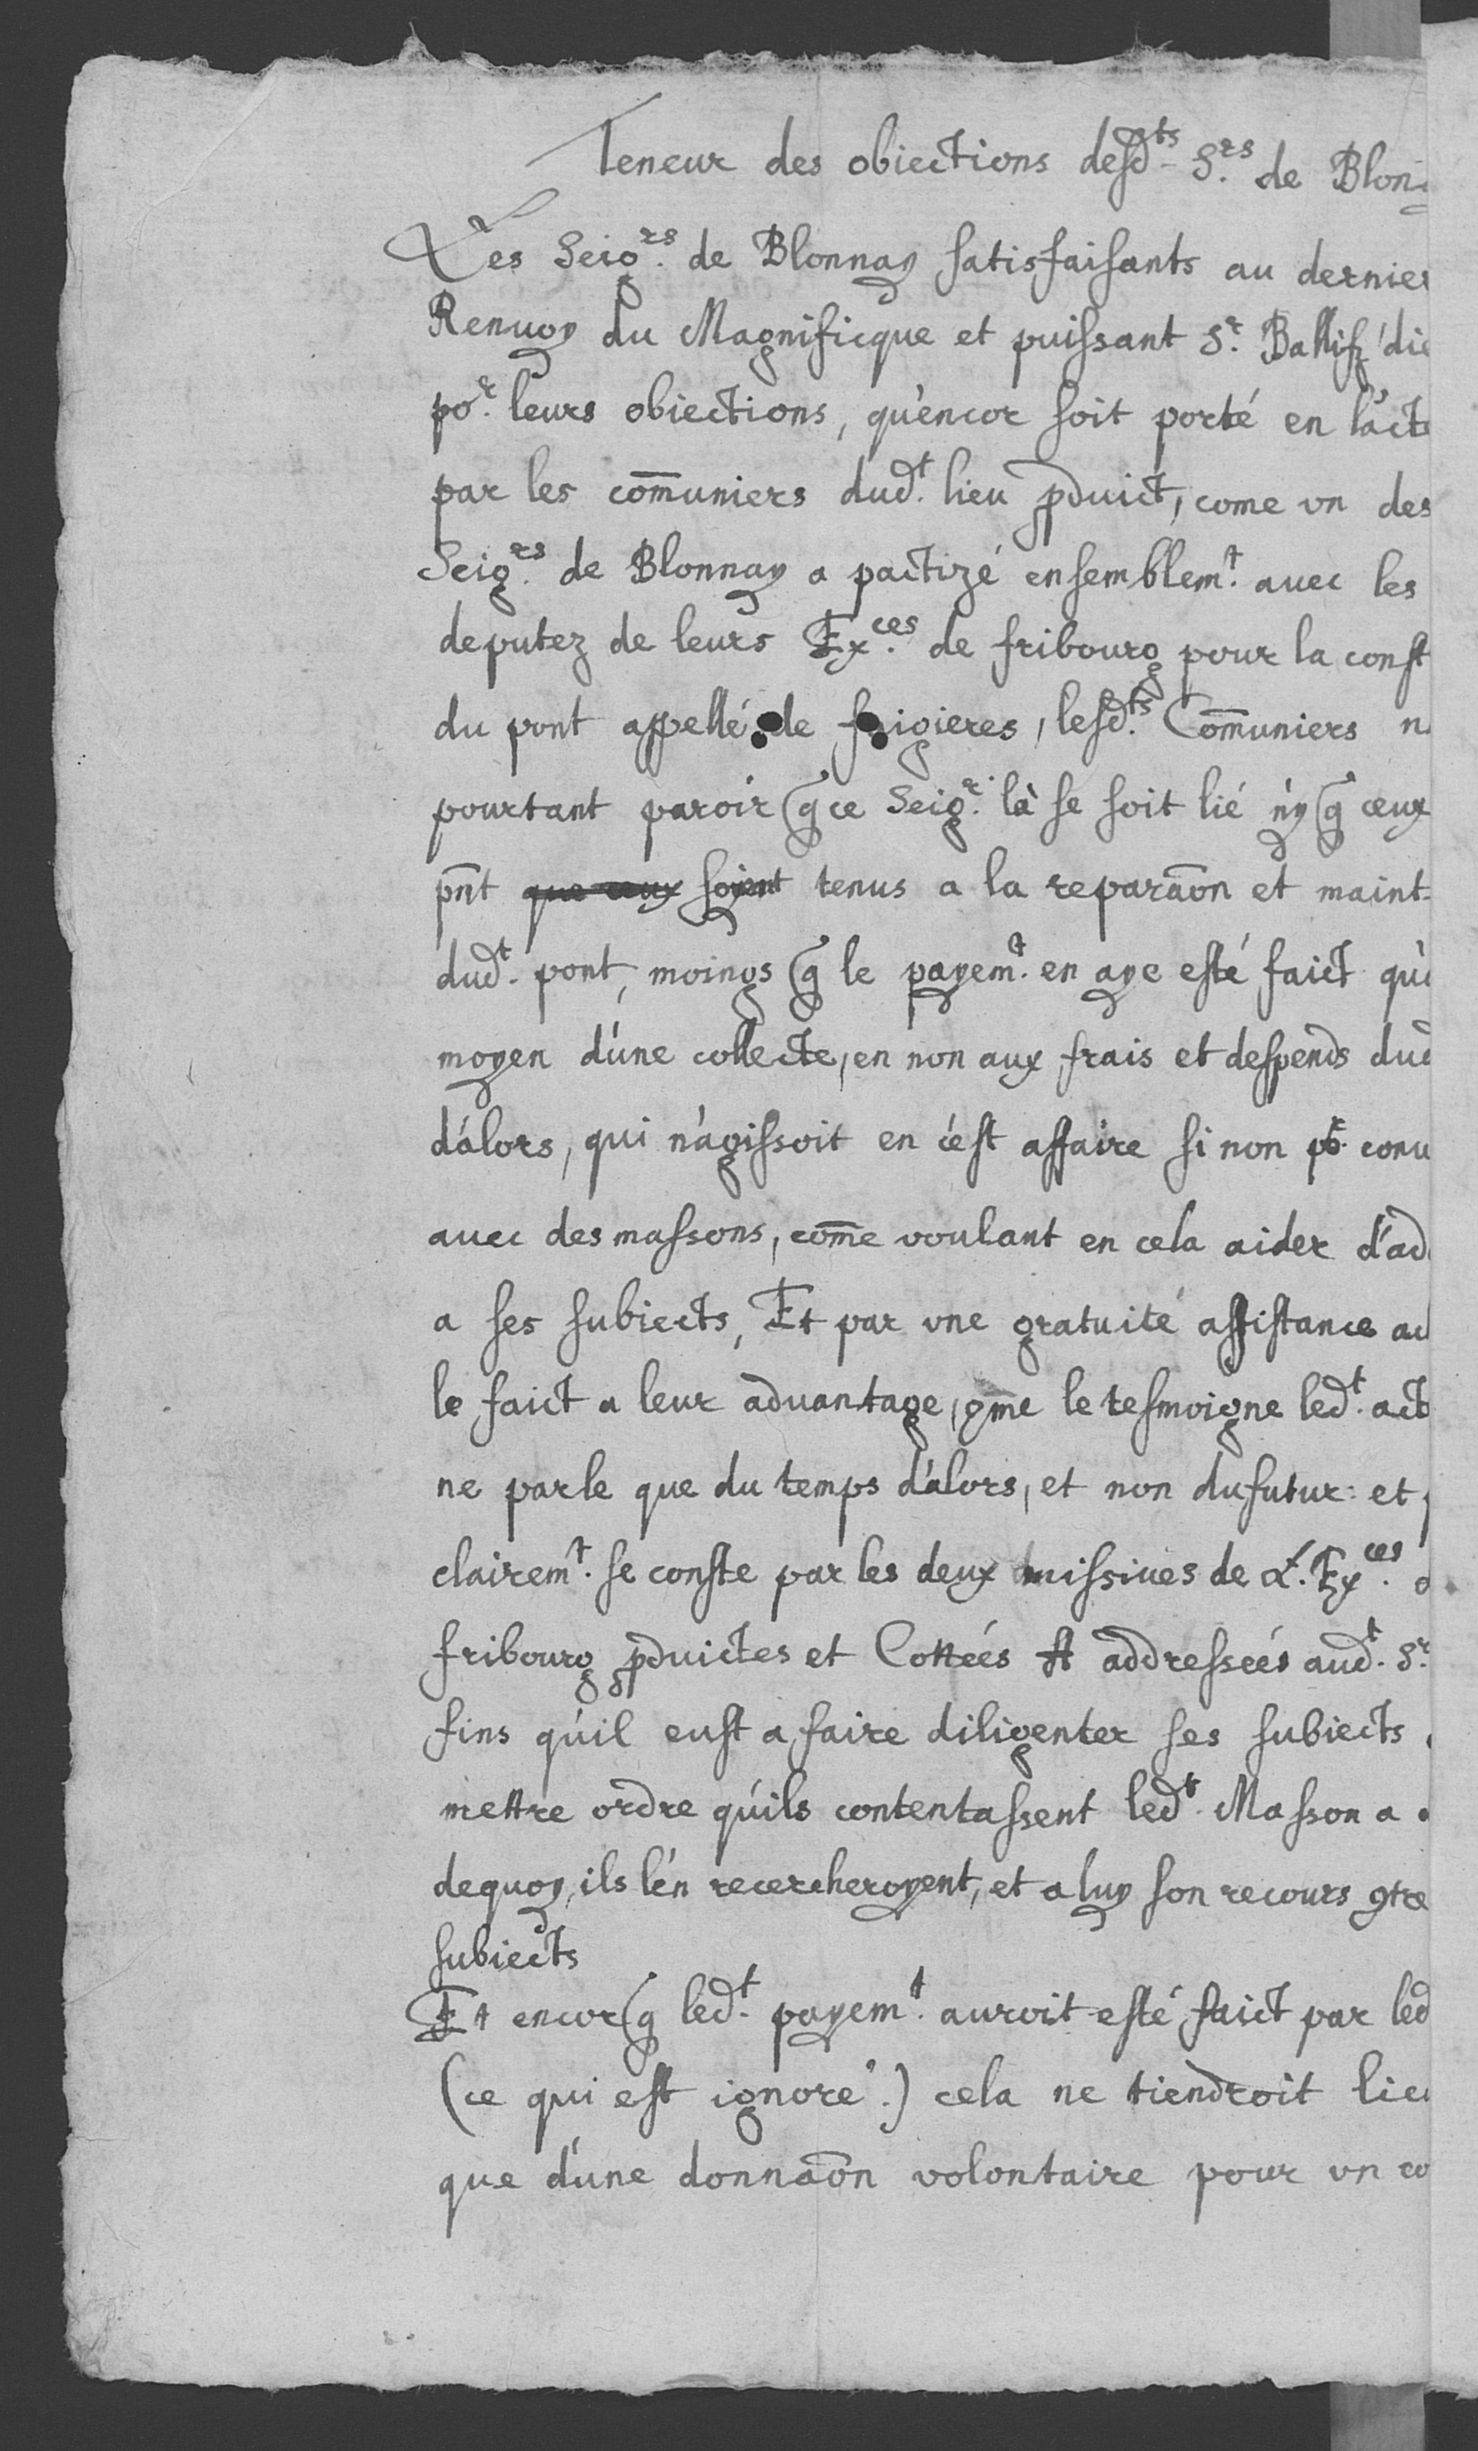 Teneur des obiections desd.ts S.rs de Blon
Les Seig.rs de Blonnay satisfaisants au dernier
Renuoy du Magnificque et puissant S.r Ballif
po.r leurs obiections, qu'encor soit porté en l'acte
par les com̄uniers dud.t lieu pduict, come vn des
Seig.rs de Blonnay a pactizé ensemblem.t auec les
deputez de leurs Ex.ces de fribourg pour la const
du pont appellé de frigieres, lesd.ts Com̄uniers n
pourtant paroir q ce Seig.r là se soit lié n'y q ceux
pn̄t que ceux soyent tenus a la reparaōn et maint
dud.t pont, moings q le payem.t en aye esté faict qu'
moyen d'une collecte, en non aux frais et despends dud
d'alors, qui n'agissoit en c'est affaire si non po.r conu
auec des massons, com̄e voulant en cela aider d'ad
a ses subiects, Et par vne gratuité assistance ad
le faict a leur aduantage, 9m̄e le tesmoigne led.t act
ne parle que du temps d'alors, et non du futur: et
clairem.t se conste par les deux missiues de L. Ex.ces
fribourg pduictes et Cottées A addressées aud.t S.r
fins qu'il eust a faire diligenter ses subiects
mettre ordre qu'ils contentassent led.t Masson a
dequoy, ils l'en recercheroyent, et a luy son recours 9tre
subiects
Et encor q led.t payem.t auroit esté faict par led
(ce qui est ignoré.) cela ne tiendroit lieu
que d'une donnaōn volontaire pour vn co